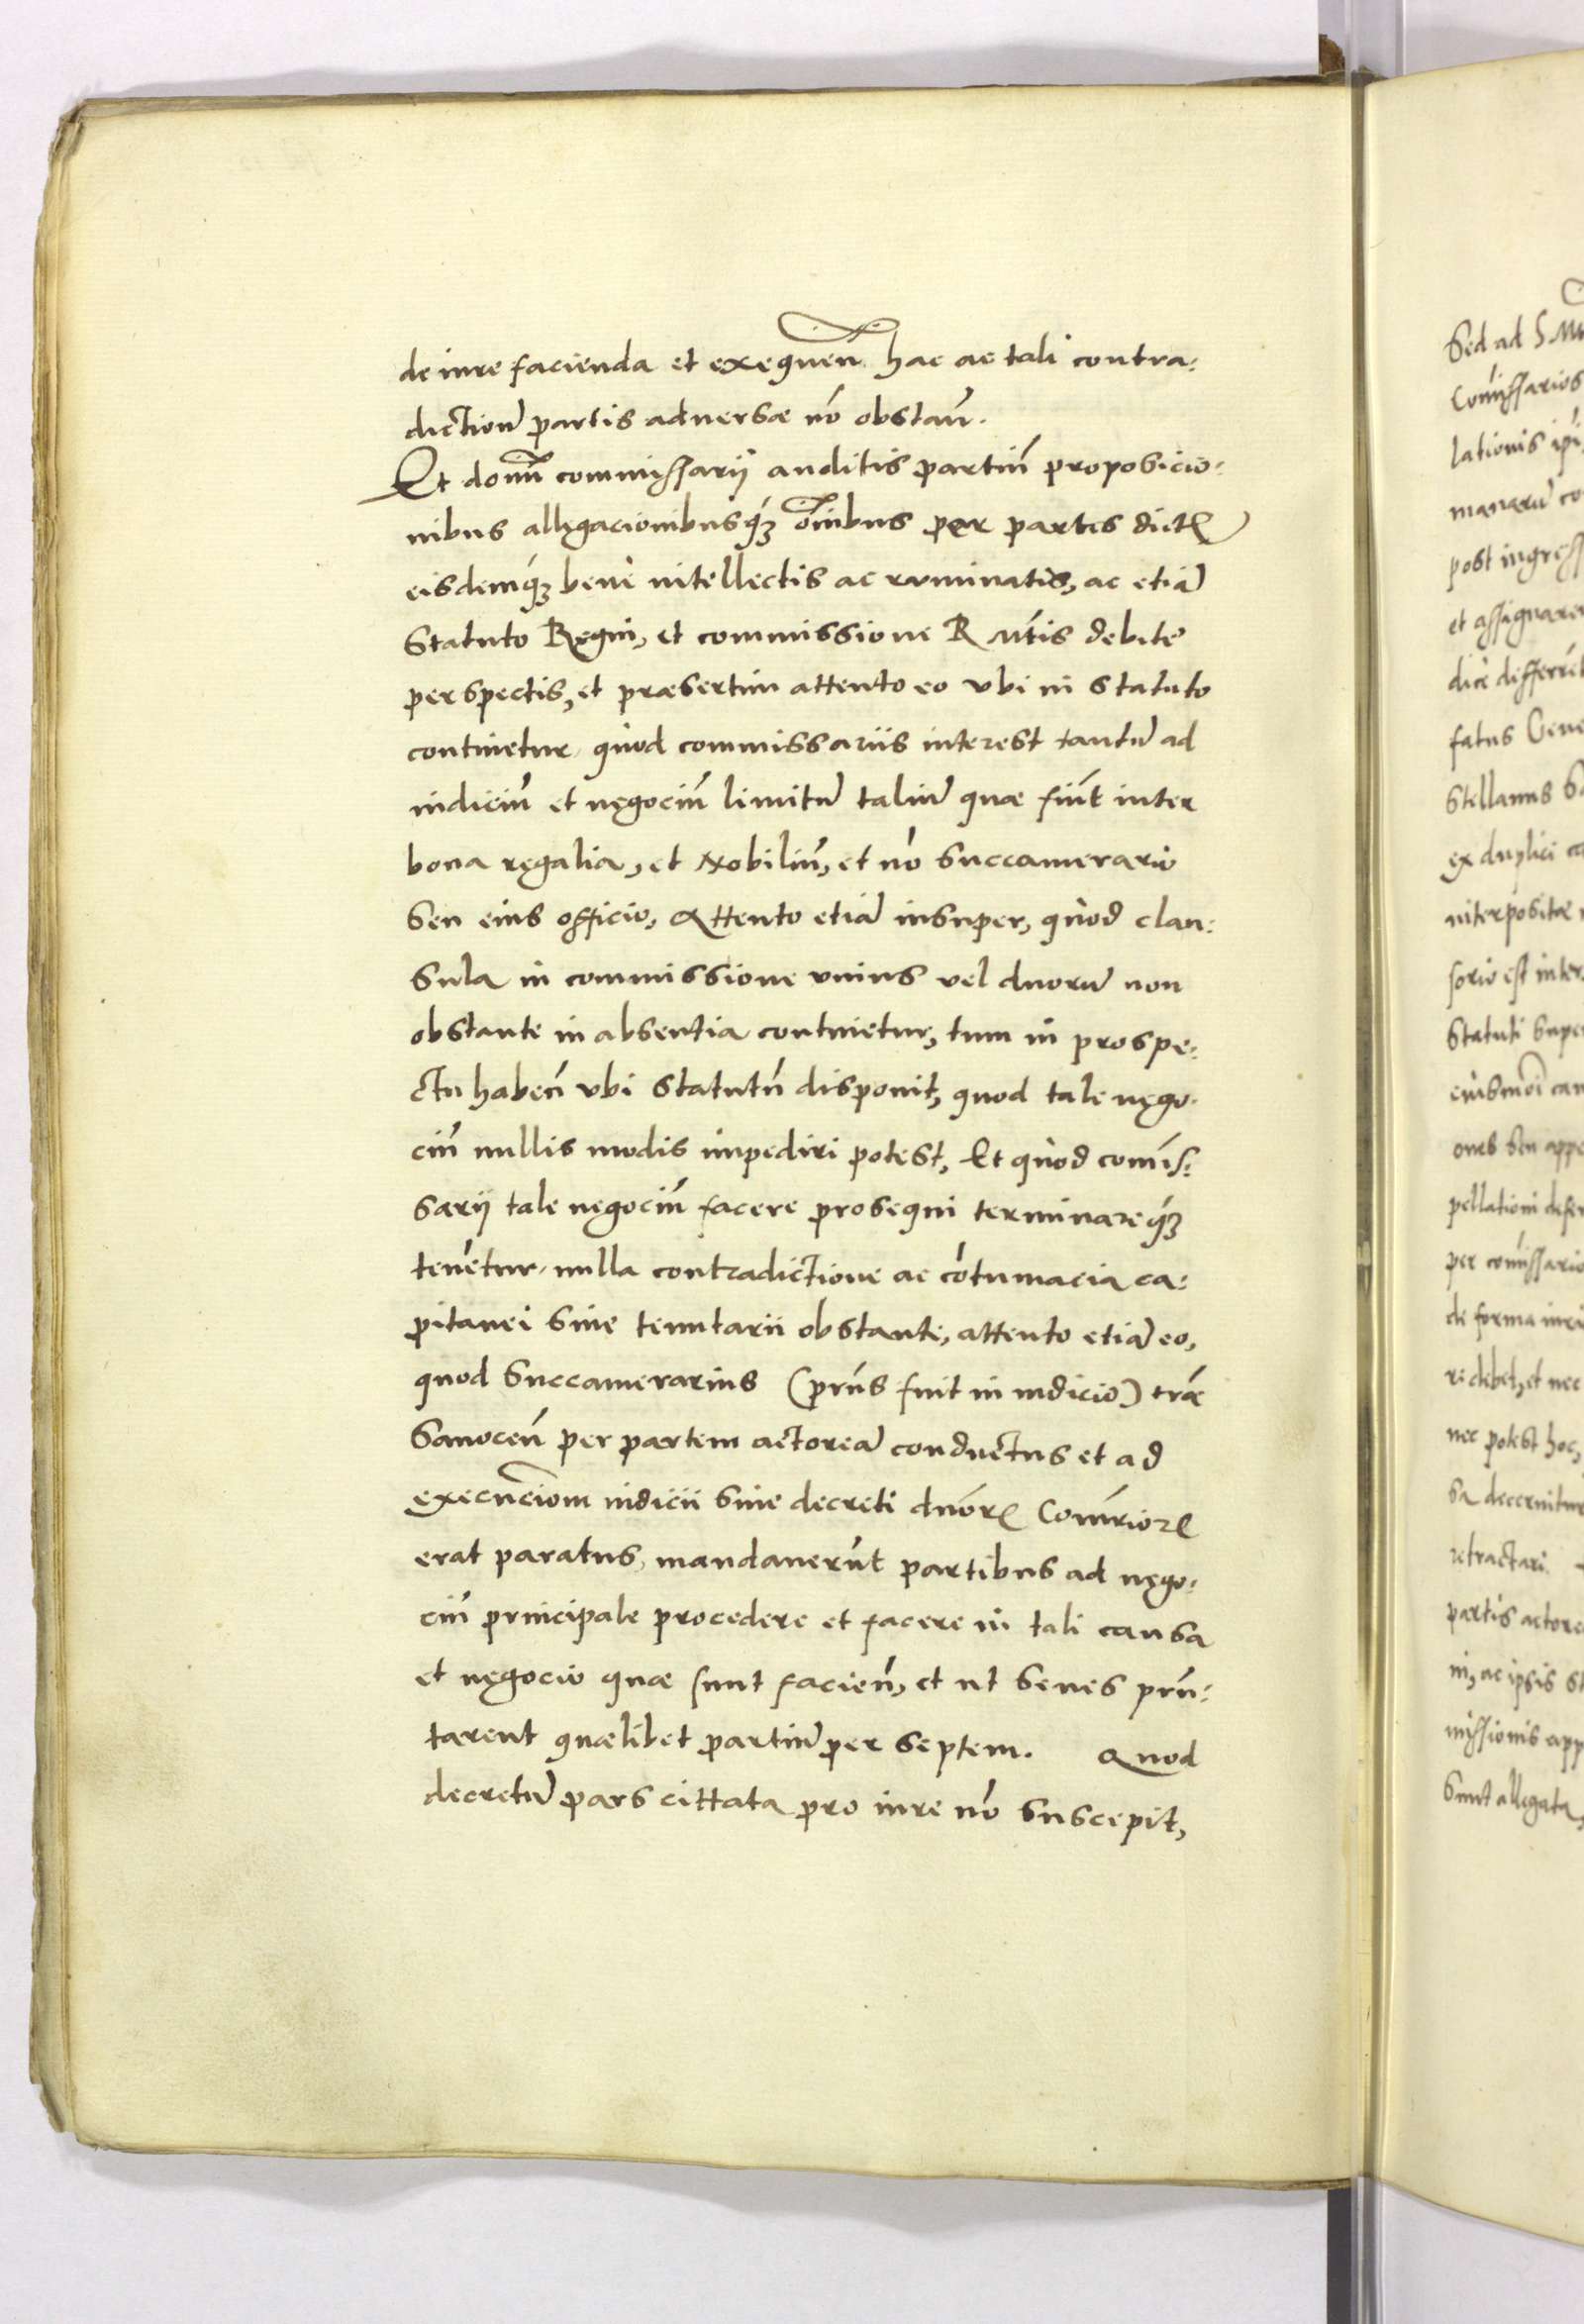 de iure facienda et exequen̄. hac ac tali contra-
dictionē partis aduersæ nō obstan̄.
Et domī commissarij auditis partiū proposicio-
nibus allegacionibusq́ꝫ oīnibus per partes dict
eisdemq́ꝫ bene intellectis ac ruminatis, ac etiā
Statuto Regni, et commissione R Mtis debite
perspectis, et præsertim attento eo vbi in statuto
continetur, quod commissariis interest tantū ad
iudiciū et negociū limitū taliū quæ fiūt inter
bona regalia, et Nobiliū, et nō Succamerario
seu eius officio, Attento etiā insuper, quod clau-
sula in commissione vnius vel duorū non
obstante in absentia continetur, tum in prospe-
ctu haben̄ vbi statutū disponit, quod tale nego-
ciū nullis modis impediri potest, Et quod comis-
sarij tale negociū facere prosequi terminareq́ꝫ
tenētur, nulla contradictione ac cōtumacia ca-
pitanei siue tenutarii obstante, attento etiā eo,
quod Succamerarius (prn̄s fuit in iudicio) træ
Sanocen̄ per partem actoreā conductus et ad
execuciōm iudicii siue decreti dnōrꝝ Com̄rioꝝ
erat paratus, mandauerūt partibus ad nego-
ciū principale procedere et facere in tali causa
et negocio quæ sunt facien̄, et ut senes prn̄-
tarent quælibet partiū per septem. Quod
decretū pars cittata pro iure nō suscepit,
Sed ad S
lationis
post ingress
fatus
Stellanus
ex duplici
interpositæ
sorio est inter
Statuti supe
pellationi defer
de forma iuri
re debet, et nec
nec potest hoc,
sa decernitur
retractari.
partis actore
ni, ac ipsis st
missionis app
sunt allegata,